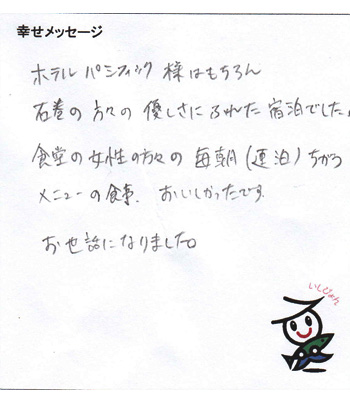 幸せメッセージ
ホテル パシフィック 様はもちろん
石巻の方々の優しさにふれた宿泊でした。
食堂の女性の方々の毎朝(連泊)ちがう
メニューの食事、おいしかったです。
お世話になりました。
いしぴょん